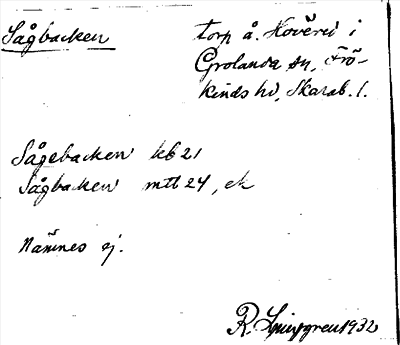 Sågbacken
torp å. Hovered i
Grolanda sn, Frö-
kinds hd, Skarab. l.
Sågebacken kb 21
Sågbacken mtl 24, ek
Nämnes ej.
R. Ljunggren 1932